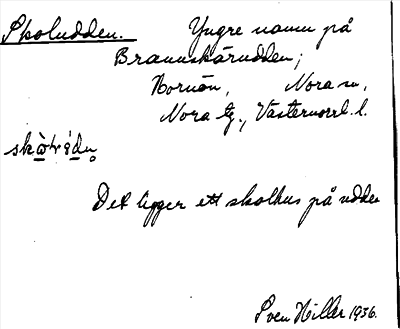 Skoludden. Yngre namn på
Brannskärudden;
Nornön, Nora sn,
Nora tg., Västernorrl. l.
Det ligger ett skolhus på udden
Sven Hiller 1936.